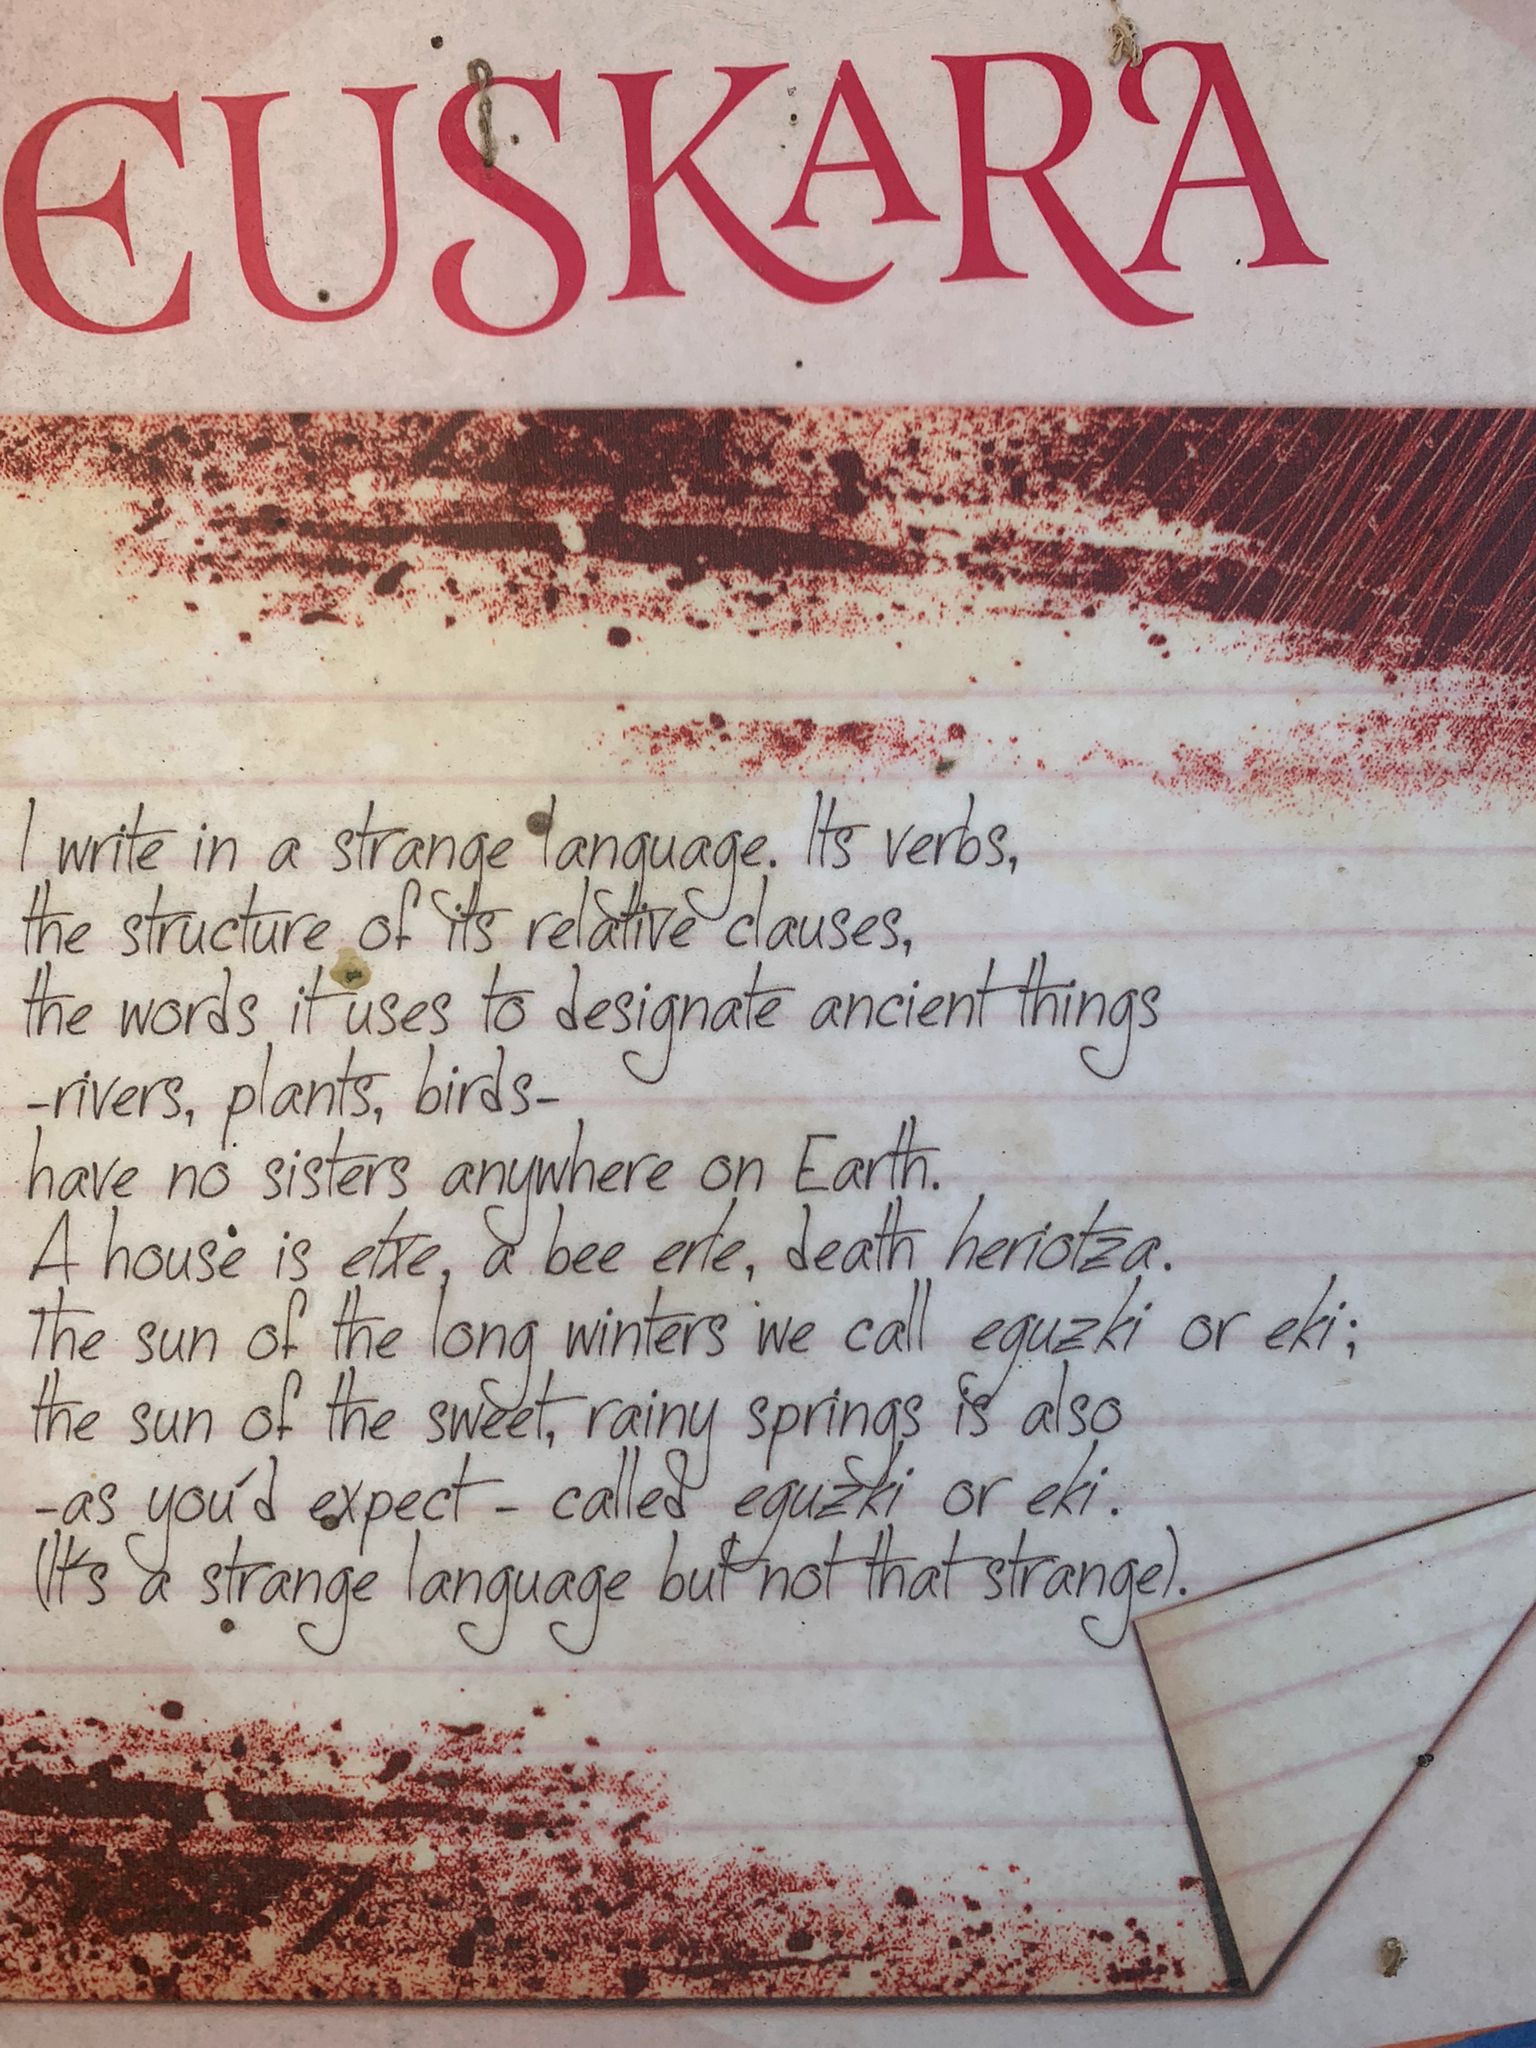 EUSKARA
I write in a strange language. Its verbs,
the structure of its relative clauses,
the words it uses to designate ancient things
-rivers, plants, birds-
have no sisters anywhere on Earth.
A house is etxe, a bee erle, death heriotza.
The sun of the long winters we call eguzki or eki;
the sun of the sweet, rainy springs is also
-as you'd expect- called eguzki or eki.
(It's a strange language but not that strange).